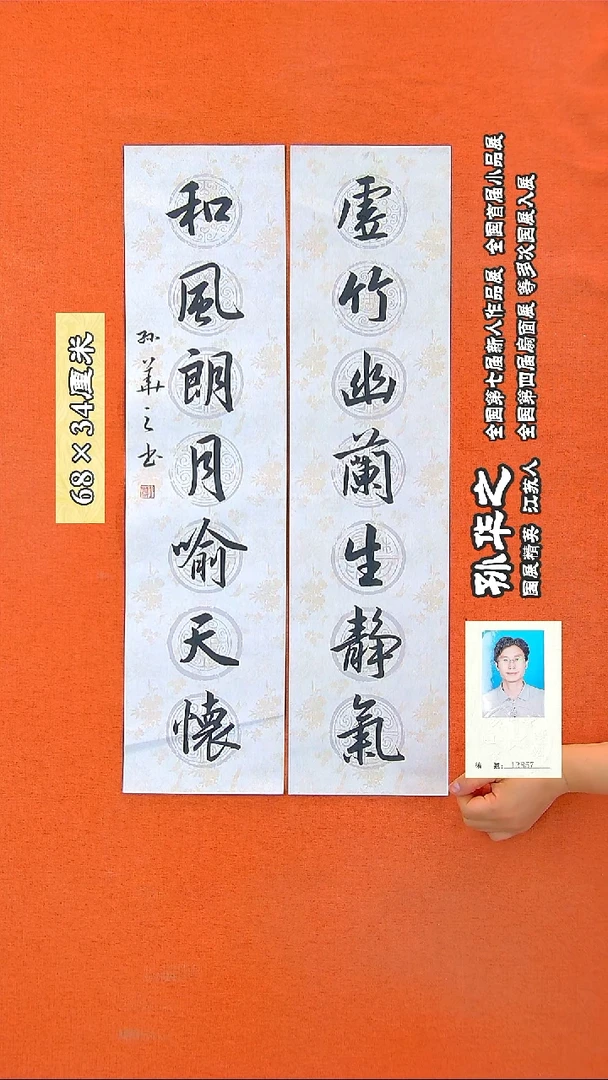 虚竹幽蘭生静氣
和風朗月喻天懷
孫華之书
68×34厘米
孙华之
国展精英 江苏人
全国第七届新人作品展 全国首届小品展
全国第四届扇面展 等多次国展入展
编号:13857